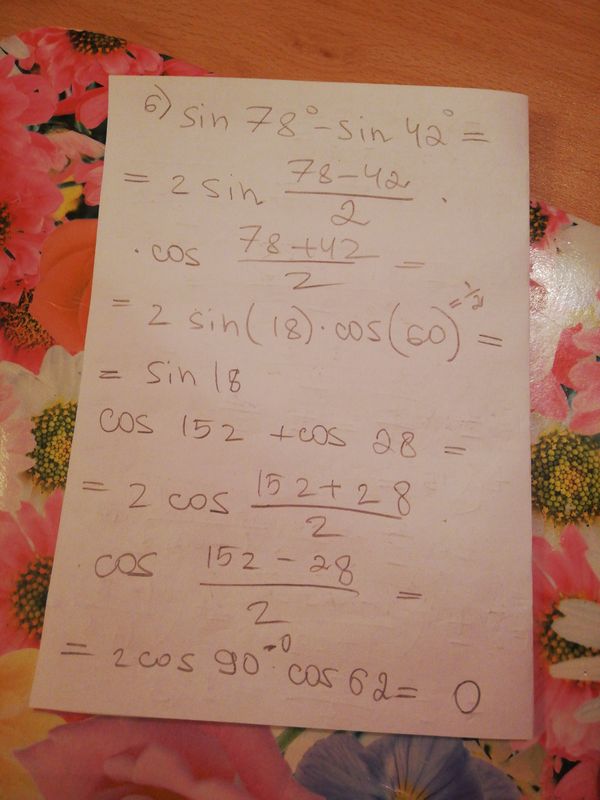 б) sin 78° - sin 42° =
= 2 sin (78-42)/2 ·
· cos (78+42)/2 =
= 2 sin(18) · cos(60)^(=1/2) =
= sin 18
cos 152 + cos 28 =
= 2 cos (152+28)/2
· cos (152-28)/2 =
= 2 cos 90^(=0) · cos 62 = 0